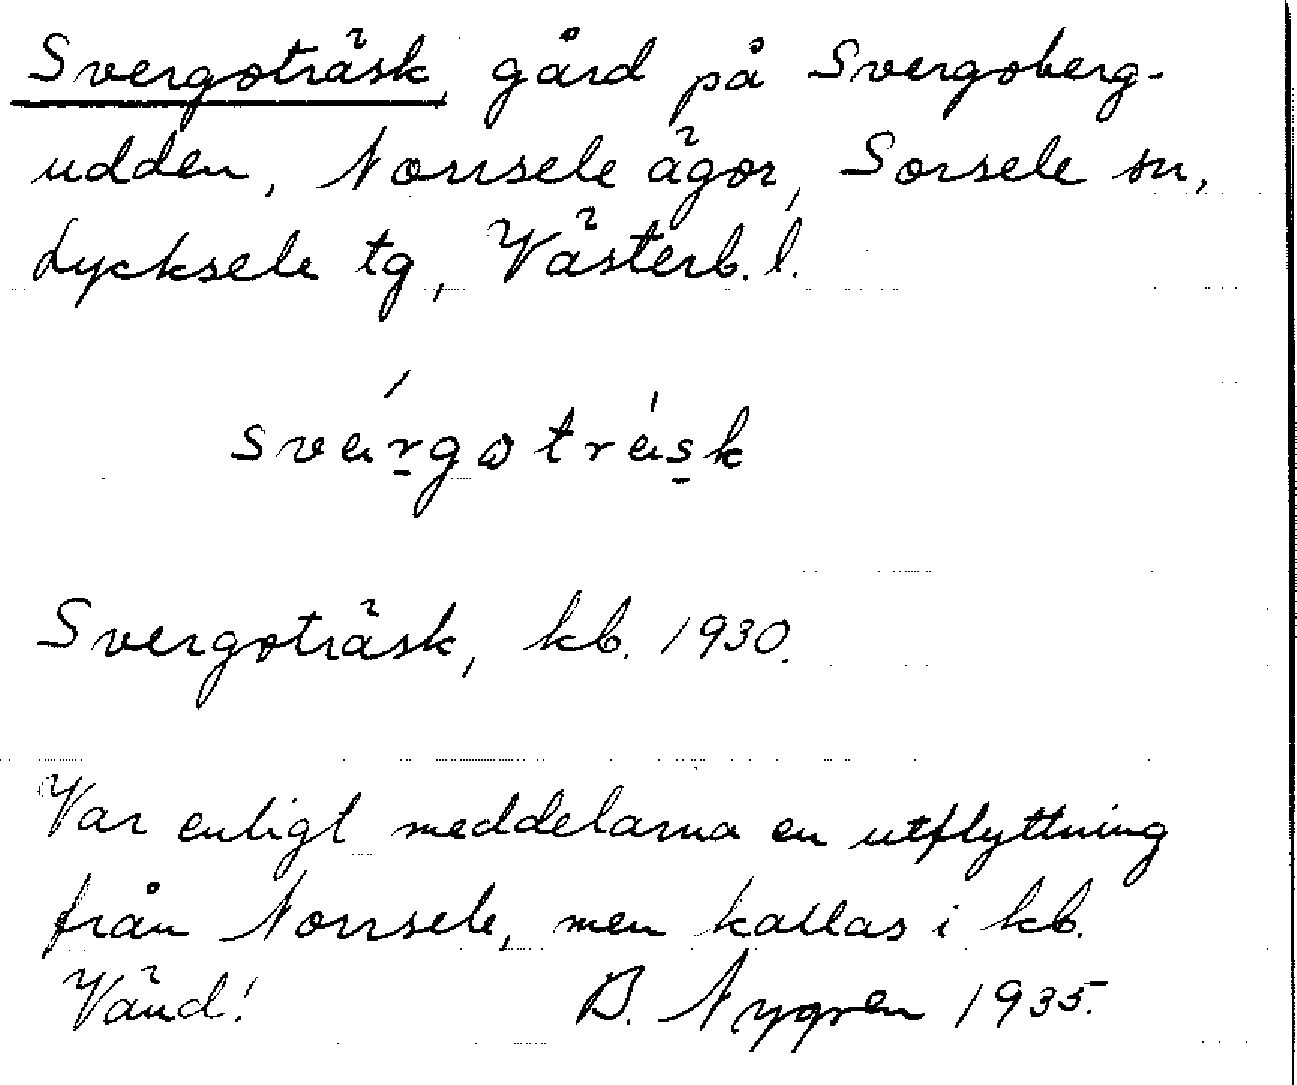 Svergoträsk, gård på Svergoberg-
udden, Norrsele ägor, Sorsele sn,
Lycksele tg, Västerb. l.
svärgoträsk
Svergoträsk, kb. 1930.
Var enligt meddelarna en utflyttning
från Norrsele, men kallas i kb.
Vänd! B. Nygren 1935.